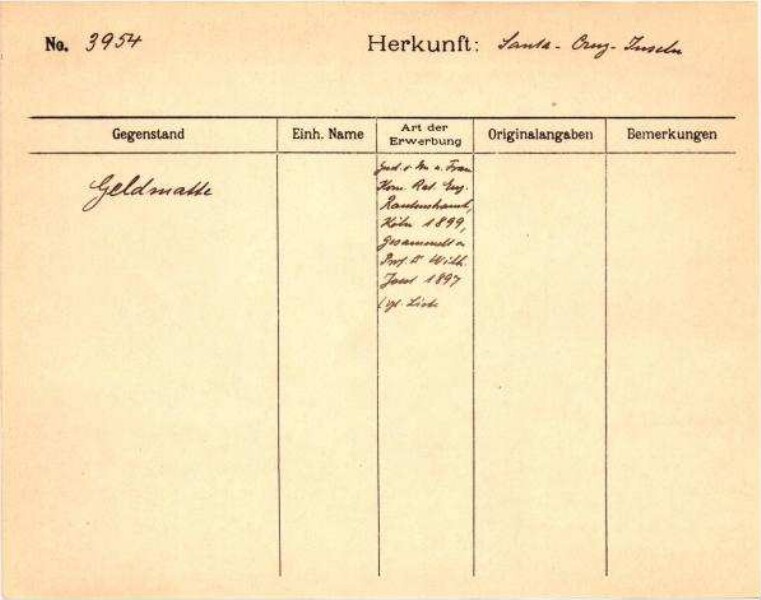 No. 3954 Herkunft: Santa-Cruz-Inseln
Gegenstand Einh. Name Art der Erwerbung Originalangaben Bemerkungen
Geldmatte
Gesch. v. Hrn u. Frau
Kom. Rat. Eug.
Rautenstrauch,
Köln 1899,
gesammelt v.
Prof. Dr Wilh.
Joest 1897
(vgl. Liste